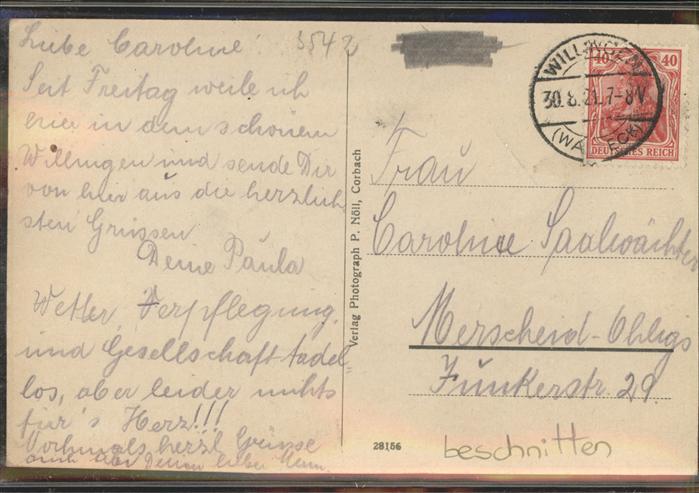 Liebe Caroline!
3542
Seit Freitag weile ich
hier in dem schönen
Willingen und sende Dir
von hier aus die herzlich
sten Grüssen
Deine Paula
Wetter, Verpflegung,
und Gesellschaft tadel
los, aber leider nichts
für's Herz!!!
Nochmals herzl. Grüsse
auch an Deinen lieben Mann.
Verlag Photograph P. Nöll, Corbach
28156
WILLINGEN
30.8.21.7-8V.
(WALDECK)
40 40
DEUTSCHES REICH
Frau
Caroline Saalwächter
Merscheid-Ohligs
Junkerstr. 29.
beschnitten